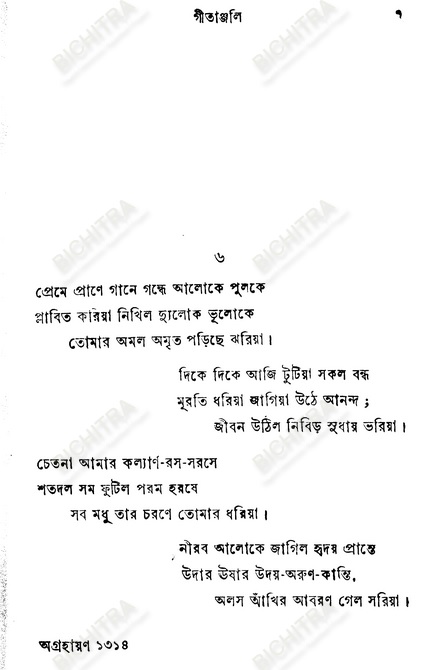 গীতাঞ্জলি ৭
৬
প্রেমে প্রাণে গানে গন্ধে আলোকে পুলকে
প্লাবিত করিয়া নিখিল দ্যুলোক ভূলোকে
তোমার অমল অমৃত পড়িছে ঝরিয়া।
দিকে দিকে আজি টুটিয়া সকল বন্ধ
মূরতি ধরিয়া জাগিয়া উঠে আনন্দ;
জীবন উঠিল নিবিড় সুধায় ভরিয়া।
চেতনা আমার কল্যাণ-রস-সরসে
শতদল সম ফুটিল পরম হরষে
সব মধু তার চরণে তোমার ধরিয়া।
নীরব আলোকে জাগিল হৃদয় প্রান্তে
উদার ঊষার উদয়-অরুণ-কান্তি,
অলস আঁখির আবরণ গেল সরিয়া।
অগ্রহায়ণ ১৩১৪
BICHITRA
BICHITRA
BICHITRA
BICHITRA
BICHITRA
BICHITRA
BICHITRA
BICHITRA